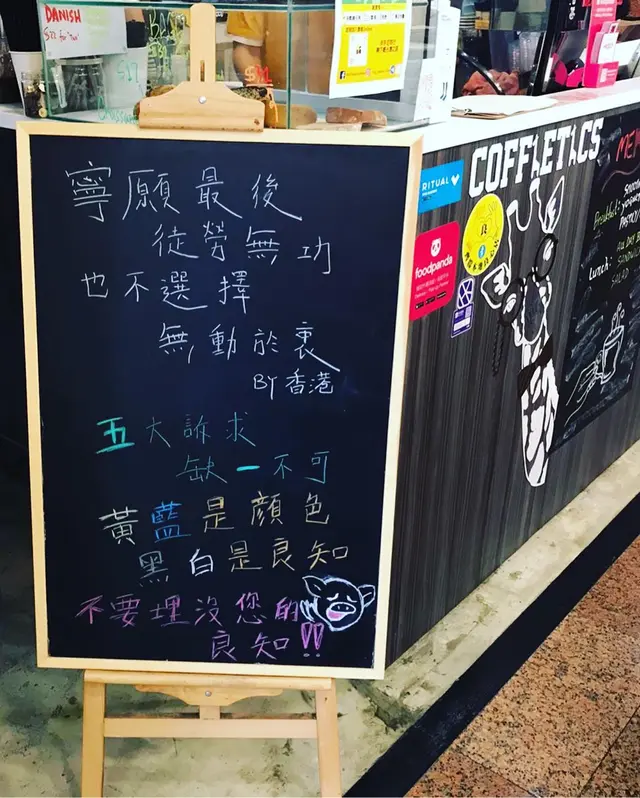 DANISH
寧願最後
徒勞無功
也不選擇
無動於衷
BY 香港
五大訴求
缺一不可
黃藍是顏色
黑白是良知
不要埋沒您的
良知!!
COFFLETICS
RITUAL
foodpanda
良
Breakfast:
Lunch:
ALL DAY
SANDWICH
SALAD